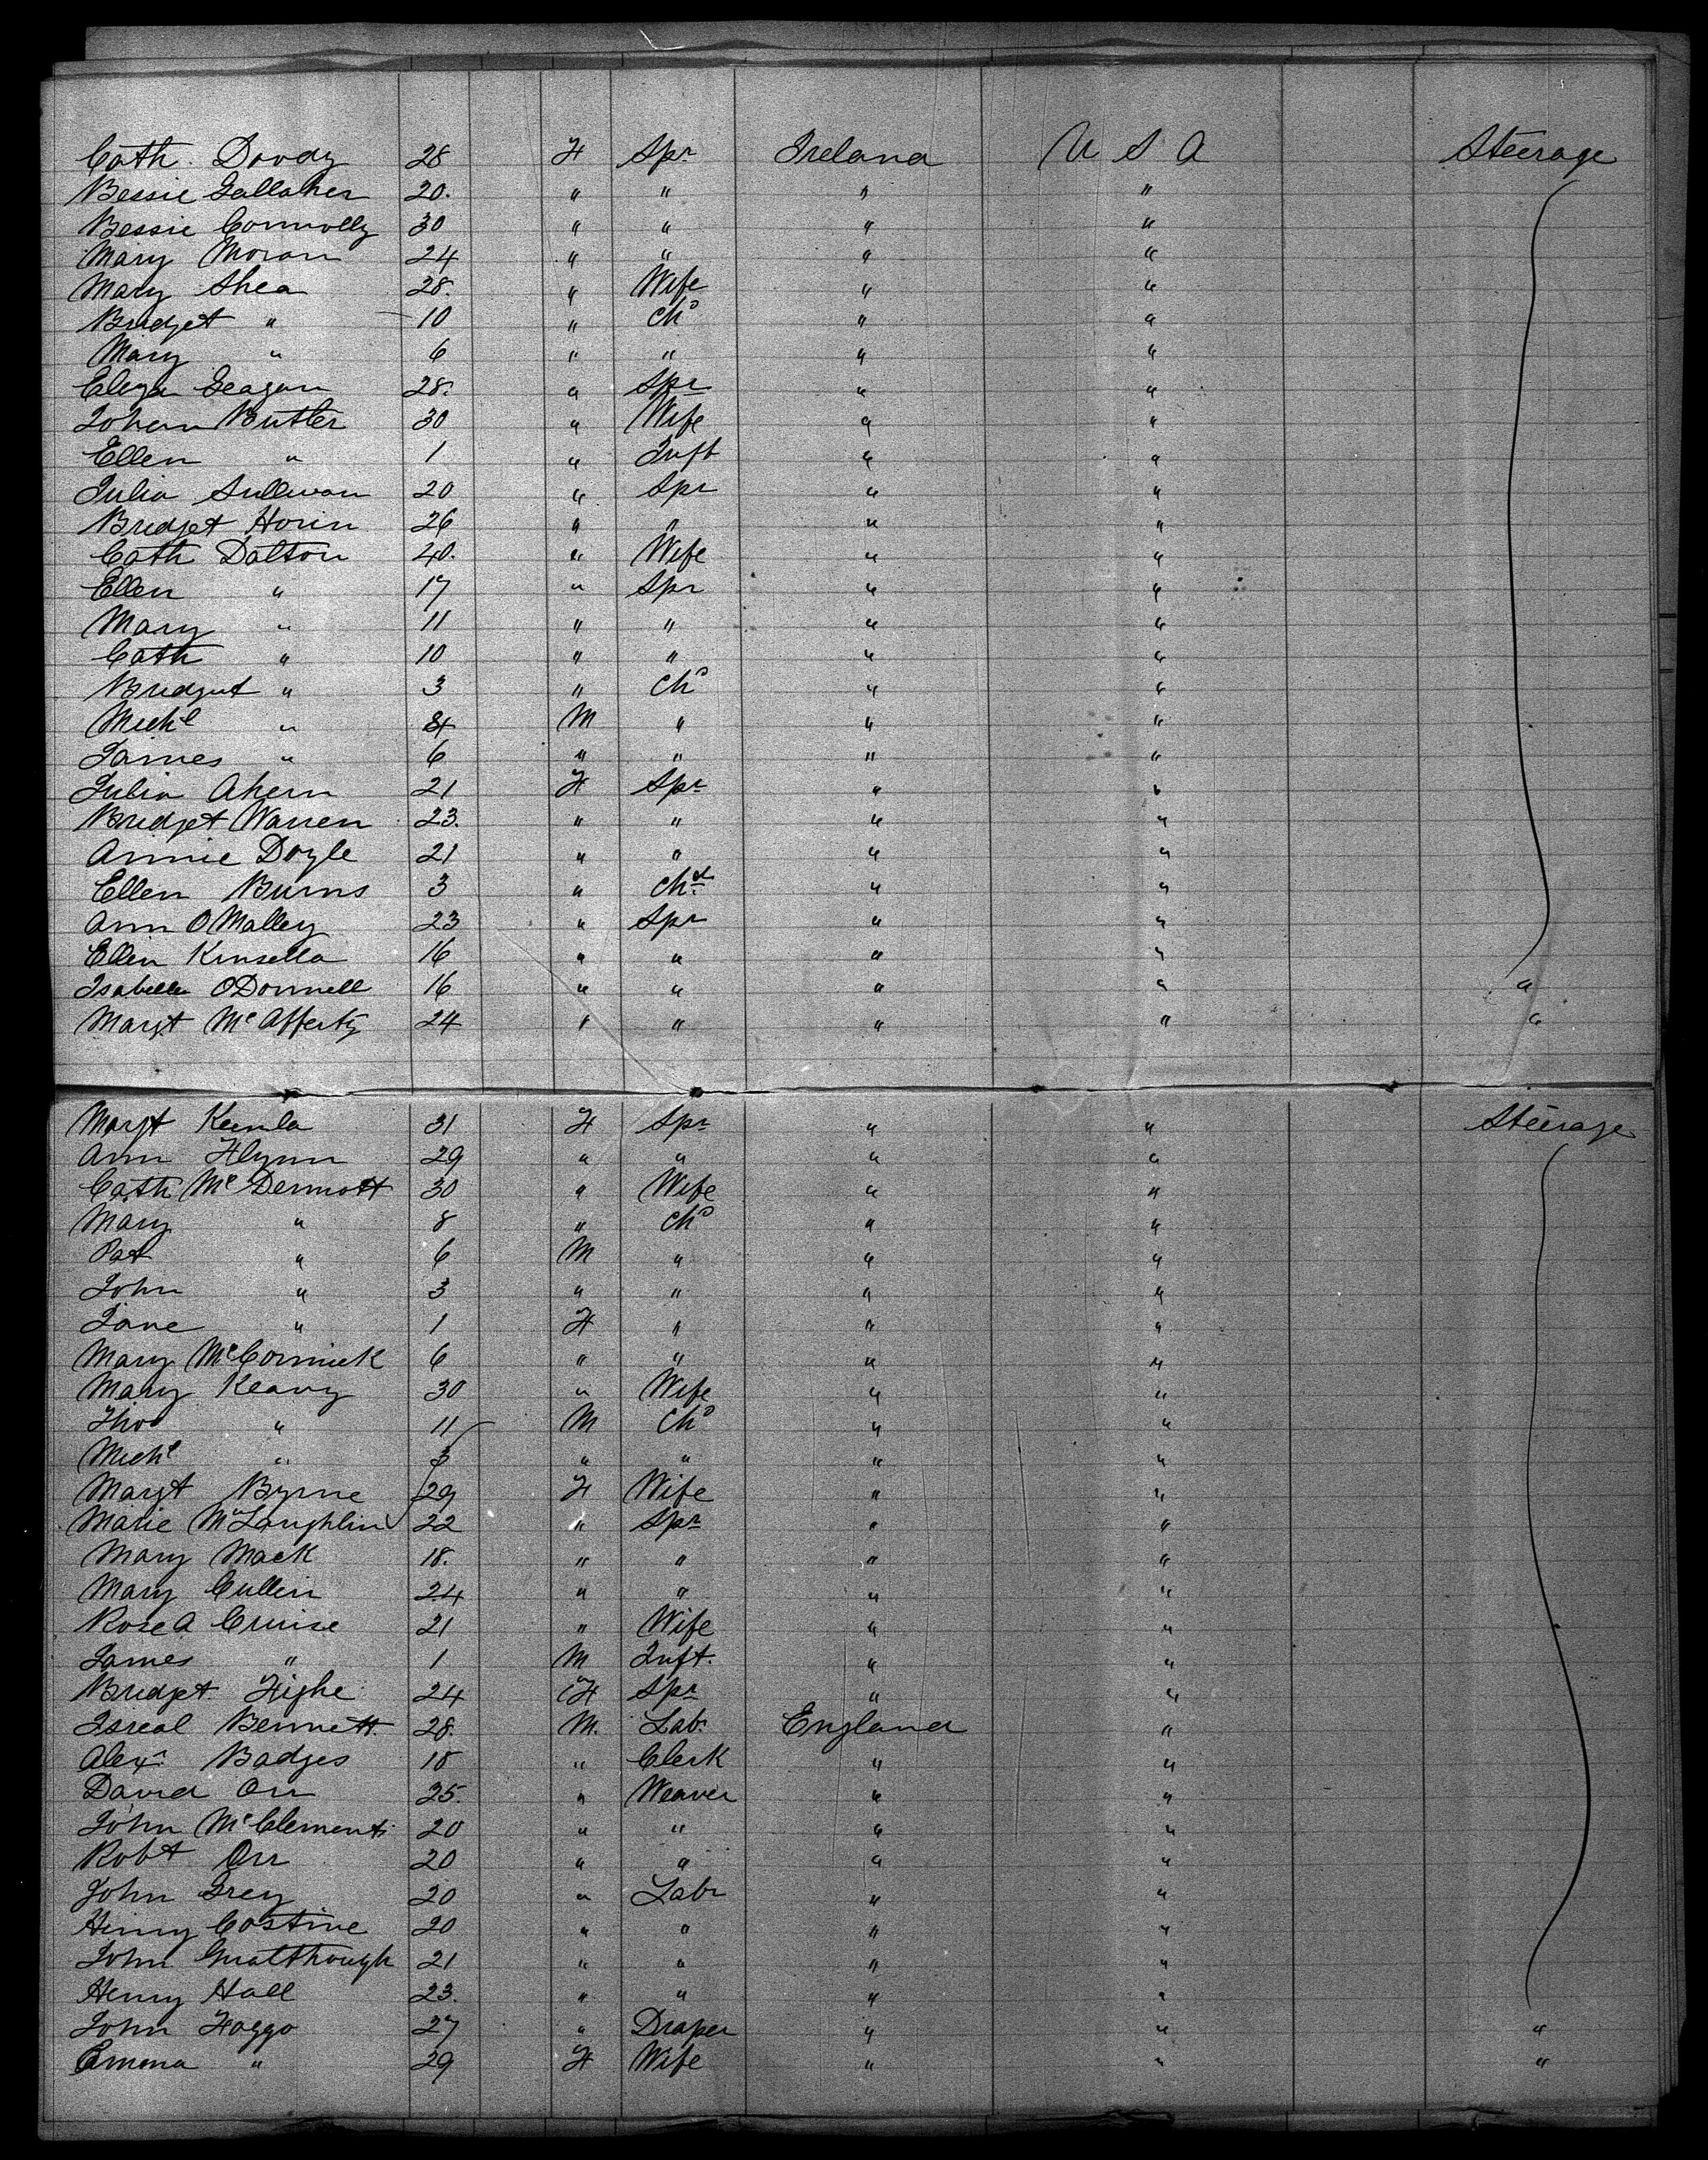 Cath. Dowdy 28 F Spr Ireland U S A Steerage
Bessie Gallaher 20. " " " "
Bessie Connolly 30 " " " "
Mary Moran 24 " " " "
Mary Shea 28. " Wife " "
Bridget " 10 " Chd " "
Mary " 6 " " " "
Eliza Geagan 28. " Spr " "
Johan Butler 30 " Wife " "
Ellen " 1 " Inft " "
Julia Sullivan 20 " Spr " "
Bridget Horin 26 " " " "
Cath Dalton 40. " Wife " "
Ellen " 17 " Spr " "
Mary " 11 " " " "
Cath " 10 " " " "
Bridget " 3 " Chd " "
Michl " M " " "
James " 6 " " " "
Julia Ahern 21 F Spr " "
Bridget Warren 23. " " " "
Annie Doyle 21 " " " "
Ellen Burns 3 " Chd " "
Ann OMalley 23 " Spr " "
Ellen Kinsella 16 " " " "
Isabella ODonnell 16 " " " " "
Margt McAfferty 24 " " " " "
Margt 31 F Spr " " Steerage
Ann Flynn 29 " " " "
Cath McDermott 30 " Wife " "
Mary " 8 " Chd " "
Pat " 6 M " " "
John " 3 " " " "
Jane " 1 F " " "
Mary McCormick 6 " " " "
Mary Keavy 30 " Wife " "
Thos " 11 M Chd " "
Michl " 3 " " " "
Margt Byrne 29 F Wife " "
Marie McLaughlin 22 " Spr " "
Mary Mack 18. " " " "
Mary Cullen 24 " " " "
Rose A Cruise 21 " Wife " "
James " 1 M Inft. " "
Bridget Tighe 24 F Spr " "
Isreal Bennett 28. M. Labr England "
Alexr Badges 18 " Clerk " "
David Orr 25. " Weaver " "
John McClements 20 " " " "
Robt Orr 20 " " " "
John Grey 20 " Labr " "
Henry Costine 20 " " " "
John 21 " " " "
Henry Hall 23. " " " "
John Foggo 27 " Draper " " "
Emma " 29 F Wife " " "